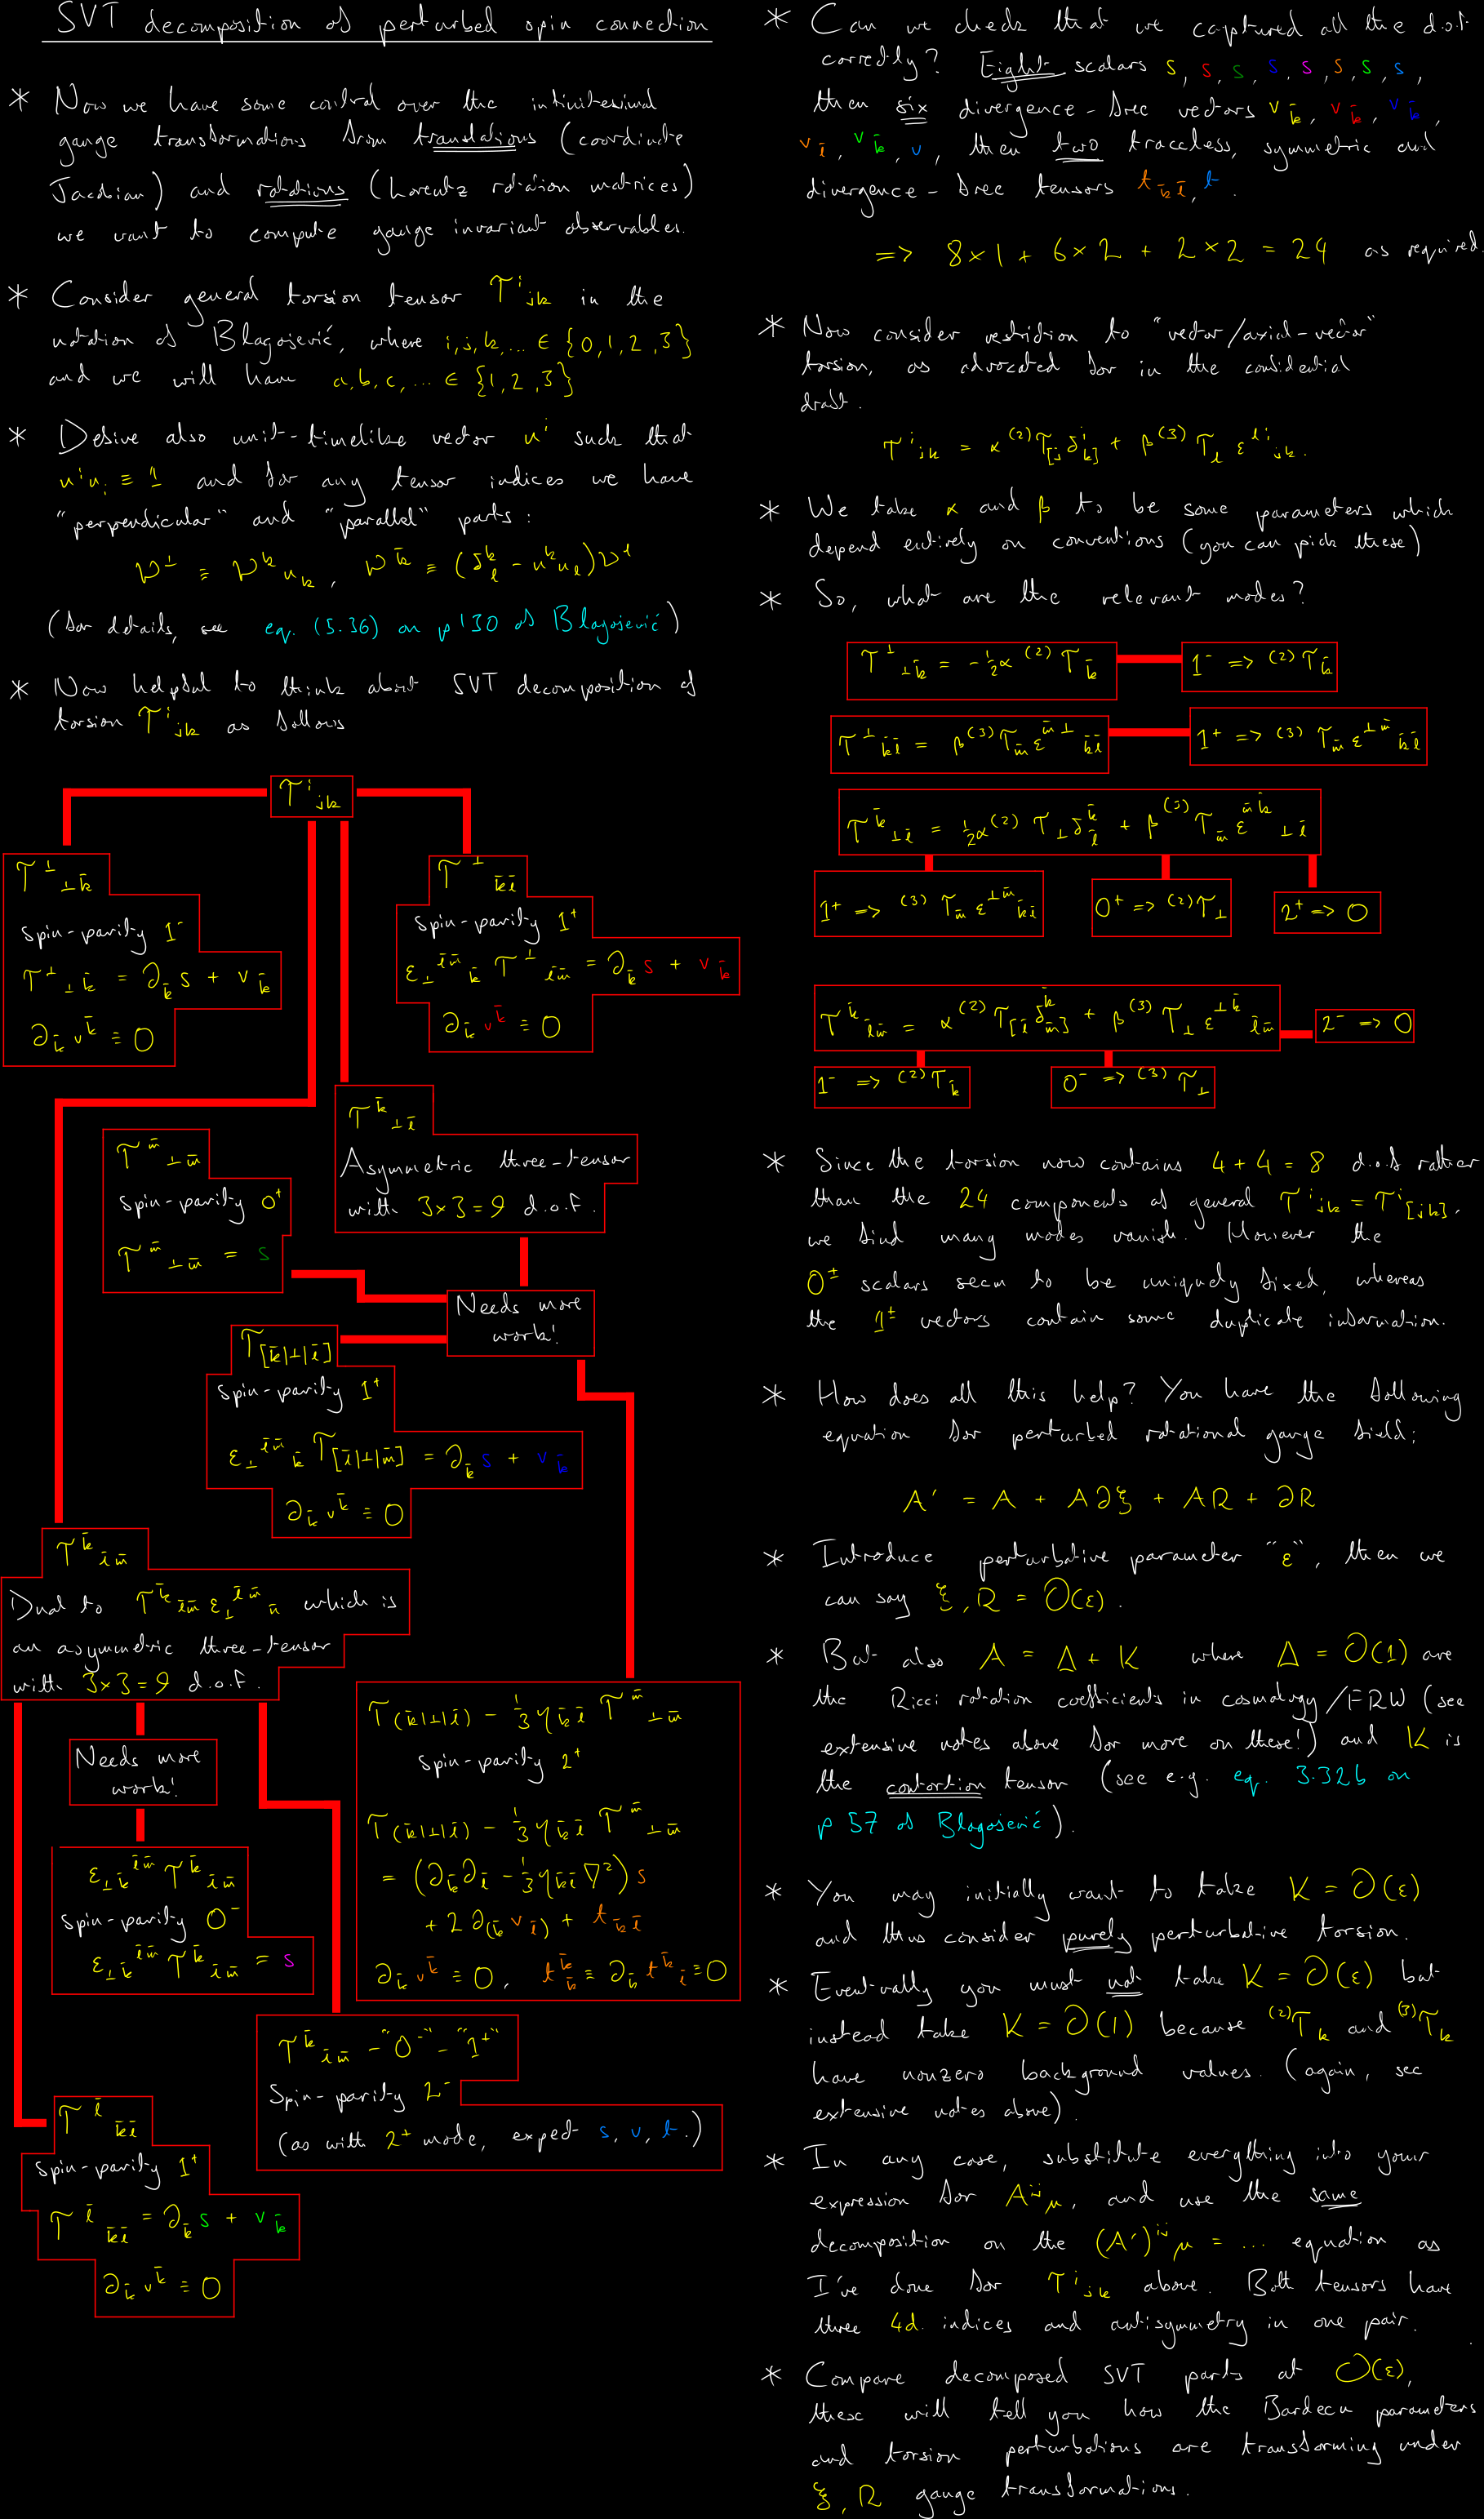 SVT decomposition of perturbed spin connection
* Now we have some control over the infinitesimal
gauge transformations from translations (coordinate
Jacobian) and rotations (Lorentz rotation matrices)
we want to compute gauge invariant observables.
* Consider general torsion tensor T^i_{jk} in the
notation of Blagojević, where i,j,k,... ∈ {0,1,2,3}
and we will have a,b,c,... ∈ {1,2,3}
* Define also unit-timelike vector u^i such that
u^i u_i ≡ 1 and for any tensor indices we have
"perpendicular" and "parallel" parts:
V^⊥ ≡ V^k u_k, V^{k̄} ≡ (δ^k_l - u^k u_l) V^l
(for details, see eq. (5.36) on p 130 of Blagojević)
* Now helpful to think about SVT decomposition of
torsion T^i_{jk} as follows
T^i_{jk}
T^⊥_{⊥k̄}
Spin-parity 1^-
T^⊥_{⊥k̄} = ∂_{k̄} s + v_{k̄}
∂_{k̄} v^{k̄} ≡ 0
T^⊥_{k̄l̄}
Spin-parity 1^+
ε_⊥^{l̄m̄}_{k̄} T^⊥_{l̄m̄} = ∂_{k̄} s + v_{k̄}
∂_{k̄} v^{k̄} ≡ 0
T^{k̄}_{⊥l̄}
Asymmetric three-tensor
with 3×3=9 d.o.f.
T^{m̄}_{⊥m̄}
Spin-parity 0^+
T^{m̄}_{⊥m̄} = s
Needs more
work!
T_{[k̄|⊥|l̄]}
Spin-parity 1^+
ε_⊥^{l̄m̄}_{k̄} T_{[l̄|⊥|m̄]} = ∂_{k̄} s + v_{k̄}
∂_{k̄} v^{k̄} ≡ 0
T^{k̄}_{l̄m̄}
Dual to T^{k̄}_{l̄m̄} ε_⊥^{l̄m̄}_{n̄} which is
an asymmetric three-tensor
with 3×3=9 d.o.f.
Needs more
work!
ε_{⊥k̄}^{l̄m̄} T^{k̄}_{l̄m̄}
Spin-parity 0^-
ε_{⊥k̄}^{l̄m̄} T^{k̄}_{l̄m̄} = s
T_{(k̄|⊥|l̄)} - 1/3 η_{k̄l̄} T^{m̄}_{⊥m̄}
Spin-parity 2^+
T_{(k̄|⊥|l̄)} - 1/3 η_{k̄l̄} T^{m̄}_{⊥m̄}
= (∂_{k̄} ∂_{l̄} - 1/3 η_{k̄l̄} ∇^2) s
+ 2 ∂_{(k̄} v_{l̄)} + t_{k̄l̄}
∂_{k̄} v^{k̄} ≡ 0, t^{k̄}_{k̄} ≡ ∂_{k̄} t^{k̄}_{l̄} ≡ 0
T^{k̄}_{l̄m̄} - "0^-" - "1^+"
Spin-parity 2^-
(as with 2^+ mode, expect s, v, t.)
T^{l̄}_{k̄l̄}
Spin-parity 1^+
T^{l̄}_{k̄l̄} = ∂_{k̄} s + v_{k̄}
∂_{k̄} v^{k̄} ≡ 0
* Can we check that we captured all the d.o.f
correctly? Eight scalars s, s, s, s, s, s, s, s,
then six divergence-free vectors v_{k̄}, v_{k̄}, v_{k̄},
v_{l̄}, v_{k̄}, v, then two traceless, symmetric and
divergence-free tensors t_{k̄l̄}, t.
=> 8×1 + 6×2 + 2×2 = 24 as required.
* Now consider restriction to "vector/axial-vector"
torsion, as advocated for in the confidential
draft.
T^i_{jk} = α ^{(2)}T_{[j} δ^i_{k]} + β ^{(3)}T_l ε^{li}_{jk}.
* We take α and β to be some parameters which
depend entirely on conventions (you can pick these)
* So, what are the relevant modes?
T^⊥_{⊥k̄} = -1/2 α ^{(2)}T_{k̄}
1^- => ^{(2)}T_{k̄}
T^⊥_{k̄l̄} = β ^{(3)}T_{m̄} ε^{m̄⊥}_{k̄l̄}
1^+ => ^{(3)}T_{m̄} ε^{⊥m̄}_{k̄l̄}
T^{k̄}_{⊥l̄} = 1/2 α ^{(2)}T_⊥ δ^{k̄}_{l̄} + β ^{(3)}T_{m̄} ε^{m̄k̄}_{⊥l̄}
1^+ => ^{(3)}T_{m̄} ε^{⊥m̄}_{k̄l̄}
0^+ => ^{(2)}T_⊥
2^+ => 0
T^{k̄}_{l̄m̄} = α ^{(2)}T_{[l̄} δ^{k̄}_{m̄]} + β ^{(3)}T_⊥ ε^{⊥k̄}_{l̄m̄}
2^- => 0
1^- => ^{(2)}T_{k̄}
0^- => ^{(3)}T_⊥
* Since the torsion now contains 4+4=8 d.o.f rather
than the 24 components of general T^i_{jk} = T^i_{[jk]},
we find many modes vanish. However the
0^± scalars seem to be uniquely fixed, whereas
the 1^± vectors contain some duplicate information.
* How does all this help? You have the following
equation for perturbed rotational gauge field:
A' = A + A∂ξ + AR + ∂R
* Introduce perturbative parameter "ε", then we
can say ξ, R = O(ε).
* But also A = Δ + K where Δ = O(1) are
the Ricci rotation coefficients in cosmology/FRW (see
extensive notes above for more on these!) and K is
the contortion tensor (see e.g. eq. 3.32b on
p 57 of Blagojević).
* You may initially want to take K = O(ε)
and thus consider purely perturbative torsion.
* Eventually you must not take K = O(ε) but
instead take K = O(1) because ^{(2)}T_k and ^{(3)}T_k
have nonzero background values. (again, see
extensive notes above).
* In any case, substitute everything into your
expression for A^{ij}_μ, and use the same
decomposition on the (A')^{ij}_μ = ... equation as
I've done for T^i_{jk} above. Both tensors have
three 4d. indices and antisymmetry in one pair.
* Compare decomposed SVT parts at O(ε),
these will tell you how the Bardeen parameters
and torsion perturbations are transforming under
ξ, R gauge transformations.